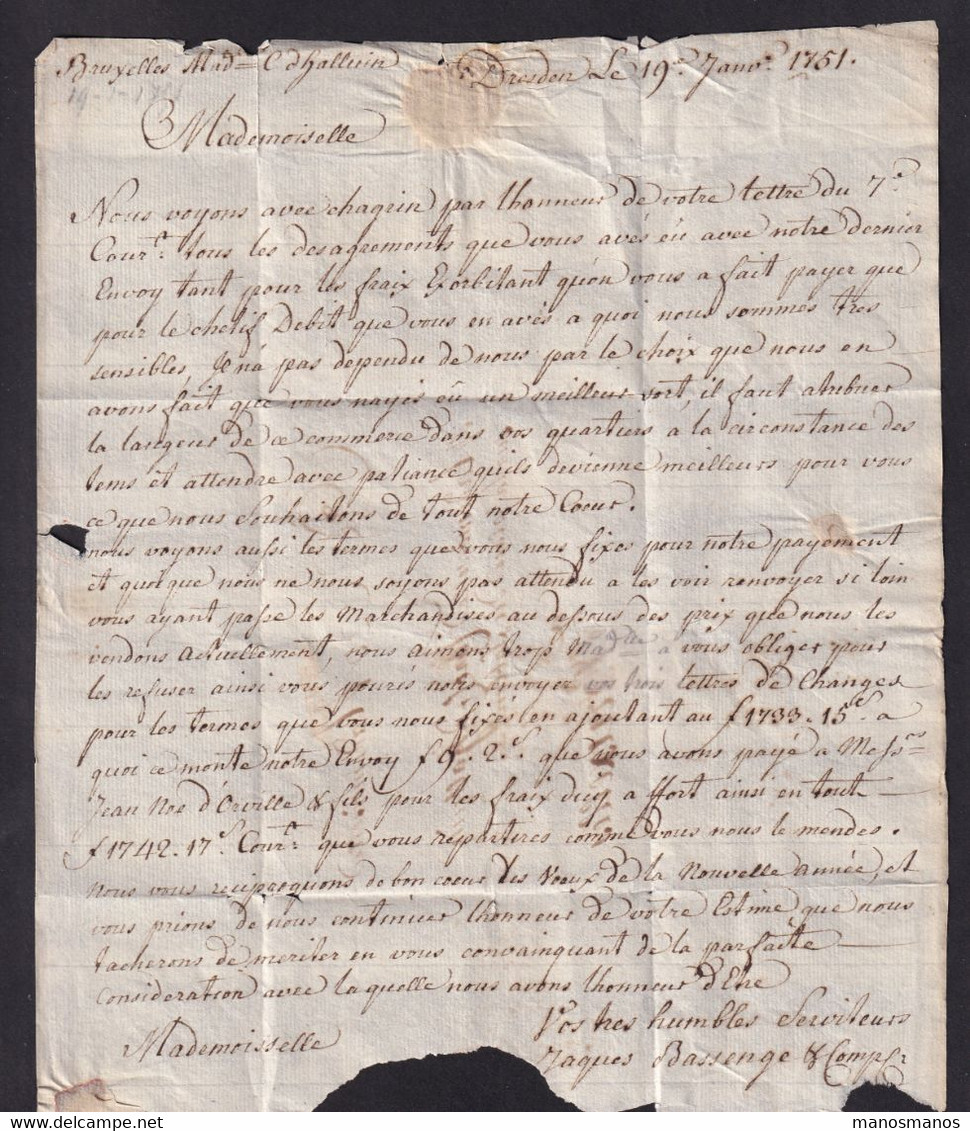 Bruxelles Mad.e C dhalluin Dresden Le 19.e Janv.r 1751.
19-1-1751
Mademoiselle
Nous voyons avec chagrin par lhonneur de votre lettre du 7.e
Cour.t tous les desagrements que vous avés eü avec notre dernier
Envoy tant pour les fraix Exorbitant qu'on vous a fait payer que
pour le chetif Debit que vous en avés a quoi nous sommes tres
sensibles, Il n'a pas dependu de nous par le choix que nous en
avons fait que vous nayés eü un meilleur sort, il faut atribuer
la langeur de ce commerce dans vos quartiers a la circonstance des
tems et attendre avec patiance quils devienne meilleurs pour vous
ce que nous Souhaitons de tout notre Coeur.
nous voyons aussi les termes que vous nous fixes pour notre payement
et quoique nous ne nous soyons pas attendu a les voir renvoyer si loin
vous ayant passé les Marchandises au dessous des prix que nous les
vendons actuellement, nous aimons trop Mad.lle a vous obliger pour
les refuser ainsi vous pourés nous envoyer vos trois lettres de Changes
pour les termes que vous nous fixés en ajoutant au f 1733. 15.s a
quoi ce monte notre Envoy f 9. 2.s que nous avons payé a Mess.rs
Jean Noé d'Orville & fils pour les fraix dicy a ffort ainsi en tout
f 1742. 17.s Cour.t que vous repartires comme vous nous le mendes.
nous vous reciproquons de bon coeur les Voeux de la Nouvelle année, et
vous prions de nous continuer lhonneur de votre Estime que nous
tacherons de meriter en vous convainquant de la parfaite
Consideration avec laquelle nous avons lhonneur d'Etre
Vos tres humbles Serviteurs
Mademoisselle Jaques Bassenge & Comp.e
manosmanos